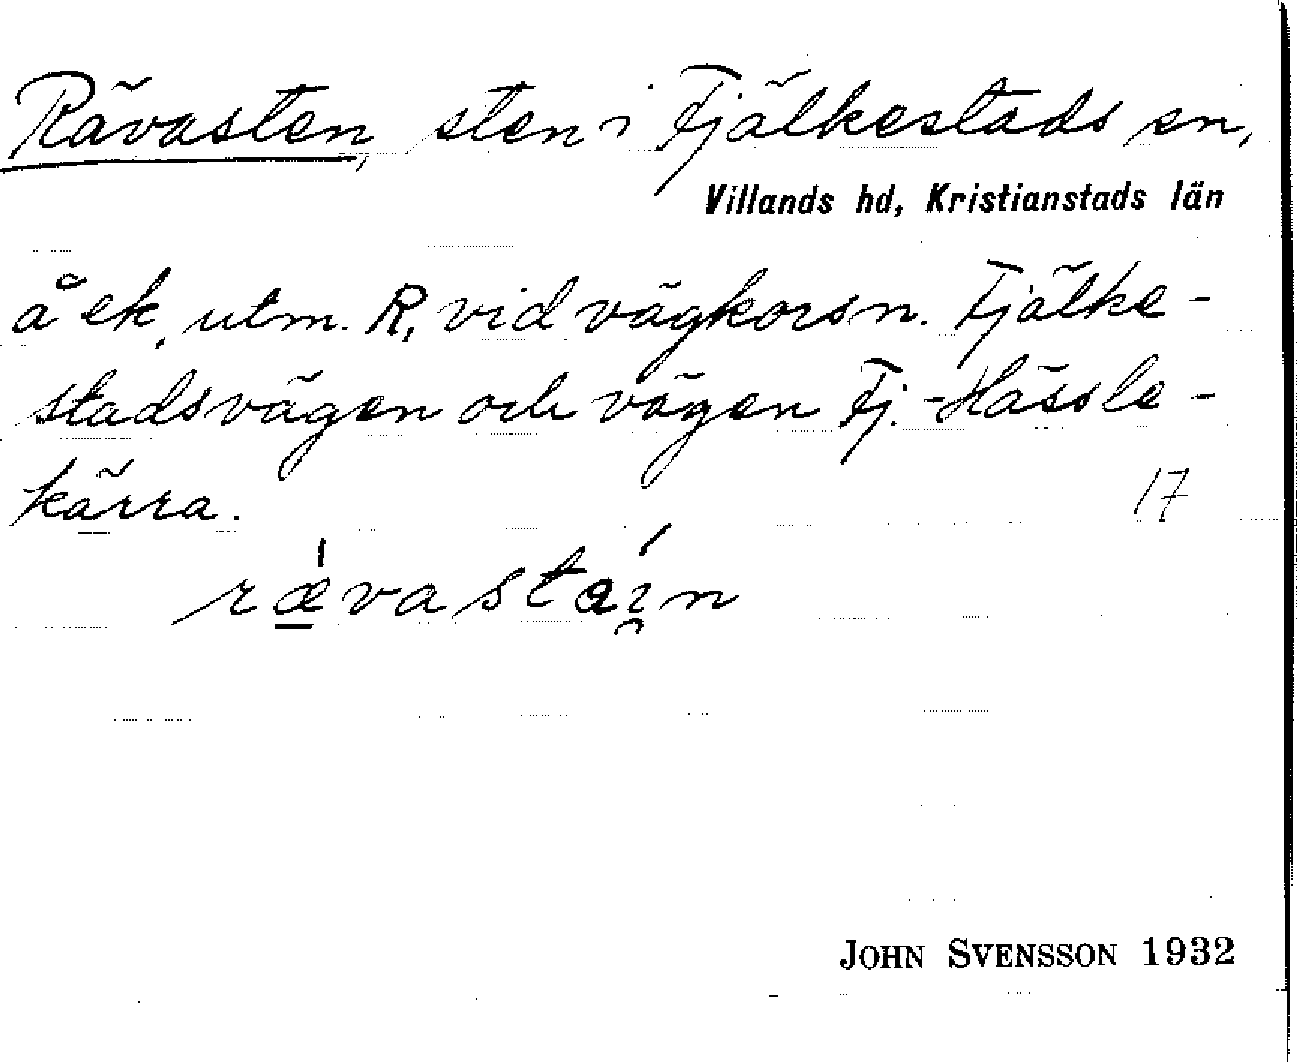 Rävasten, sten i Fjälkestads sn,
Villands hd, Kristianstads län
å ek. utm. R, vid vägkorsn. Fjälke-
stadsvägen och vägen Fj.-Hässle-
kärra.
17
rævastain
JOHN SVENSSON 1932